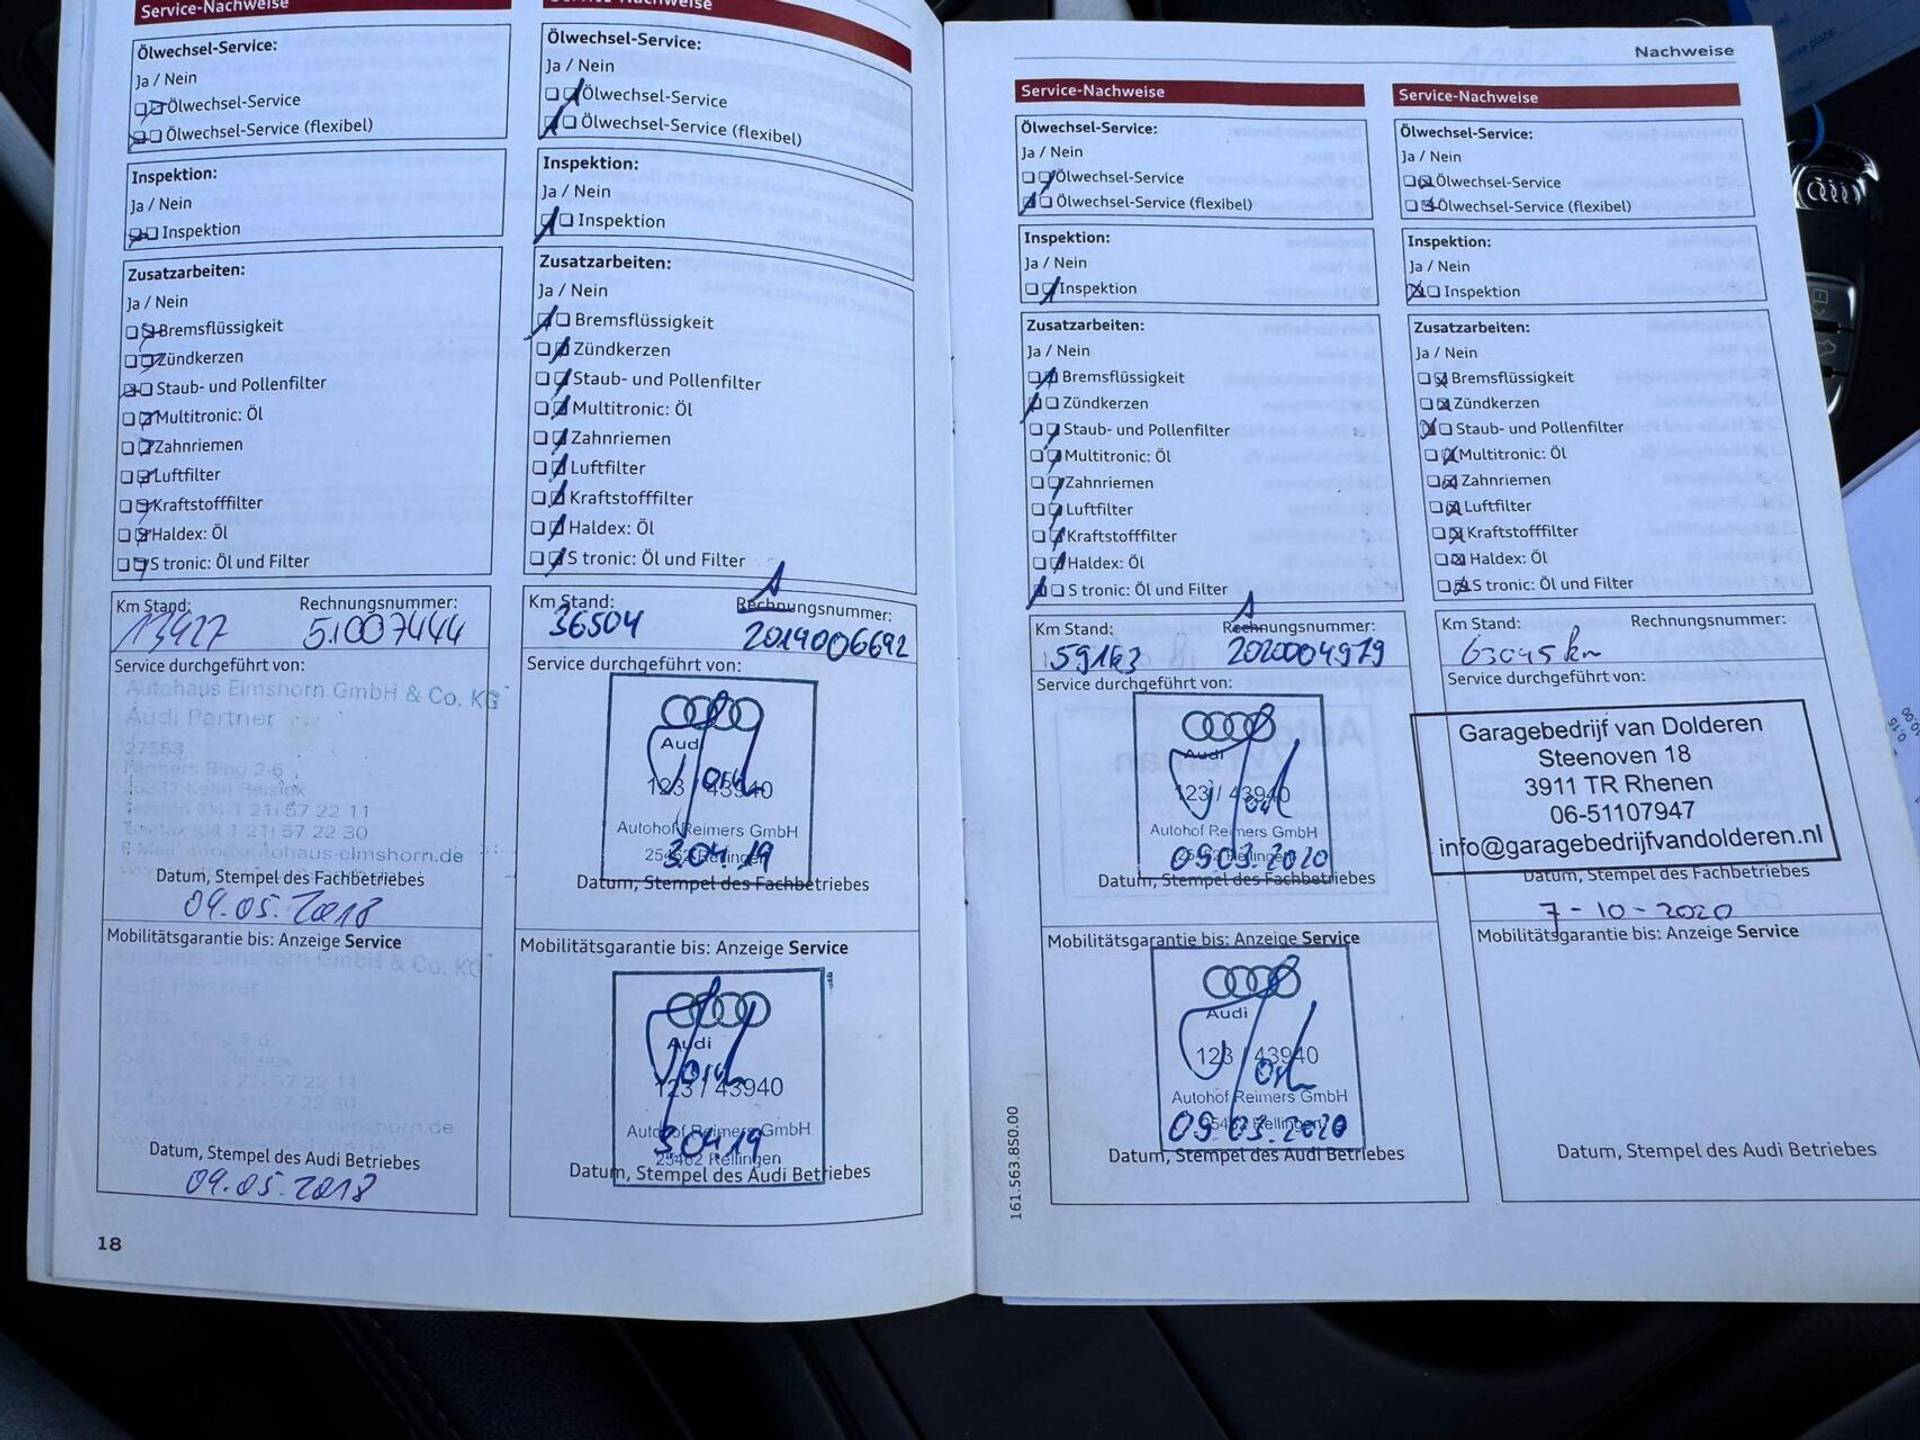 Service-Nachweise
Ölwechsel-Service:
Ja / Nein
Ölwechsel-Service
Ölwechsel-Service (flexibel)
Inspektion:
Ja / Nein
Inspektion
Zusatzarbeiten:
Ja / Nein
Bremsflüssigkeit
Zündkerzen
Staub- und Pollenfilter
Multitronic: Öl
Zahnriemen
Luftfilter
Kraftstofffilter
Haldex: Öl
S tronic: Öl und Filter
Km Stand: Rechnungsnummer:
13427 51007444
Service durchgeführt von:
Autohaus Elmshorn GmbH & Co. KG
Audi Partner
27553
21/ 57 22 11
21/ 57 22 30
Datum, Stempel des Fachbetriebes
04.05.2018
Mobilitätsgarantie bis: Anzeige Service
Datum, Stempel des Audi Betriebes
04.05.2018
18
Service-Nachweise
Ölwechsel-Service:
Ja / Nein
Ölwechsel-Service
Ölwechsel-Service (flexibel)
Inspektion:
Ja / Nein
Inspektion
Zusatzarbeiten:
Ja / Nein
Bremsflüssigkeit
Zündkerzen
Staub- und Pollenfilter
Multitronic: Öl
Zahnriemen
Luftfilter
Kraftstofffilter
Haldex: Öl
S tronic: Öl und Filter
Km Stand: Rechnungsnummer:
36504 2019006692
Service durchgeführt von:
Audi
123 / 43940
Autohof Reimers GmbH
25462 Rellingen
3.04.19
Datum, Stempel des Fachbetriebes
Mobilitätsgarantie bis: Anzeige Service
Audi
123 / 43940
Autohof Reimers GmbH
3.04.19
25462 Rellingen
Datum, Stempel des Audi Betriebes
Nachweise
Service-Nachweise
Ölwechsel-Service:
Ja / Nein
Ölwechsel-Service
Ölwechsel-Service (flexibel)
Inspektion:
Ja / Nein
Inspektion
Zusatzarbeiten:
Ja / Nein
Bremsflüssigkeit
Zündkerzen
Staub- und Pollenfilter
Multitronic: Öl
Zahnriemen
Luftfilter
Kraftstofffilter
Haldex: Öl
S tronic: Öl und Filter
Km Stand: Rechnungsnummer:
59163 2020004979
Service durchgeführt von:
Audi
123 / 43940
Autohof Reimers GmbH
25462 Rellingen
09.03.2020
Datum, Stempel des Fachbetriebes
Mobilitätsgarantie bis: Anzeige Service
Audi
123 / 43940
Autohof Reimers GmbH
25462 Rellingen
09.03.2020
Datum, Stempel des Audi Betriebes
161.563.850.00
Service-Nachweise
Ölwechsel-Service:
Ja / Nein
Ölwechsel-Service
Ölwechsel-Service (flexibel)
Inspektion:
Ja / Nein
Inspektion
Zusatzarbeiten:
Ja / Nein
Bremsflüssigkeit
Zündkerzen
Staub- und Pollenfilter
Multitronic: Öl
Zahnriemen
Luftfilter
Kraftstofffilter
Haldex: Öl
S tronic: Öl und Filter
Km Stand: Rechnungsnummer:
63045 km
Service durchgeführt von:
Garagebedrijf van Dolderen
Steenoven 18
3911 TR Rhenen
06-51107947
info@garagebedrijfvandolderen.nl
Datum, Stempel des Fachbetriebes
7-10-2020
Mobilitätsgarantie bis: Anzeige Service
Datum, Stempel des Audi Betriebes